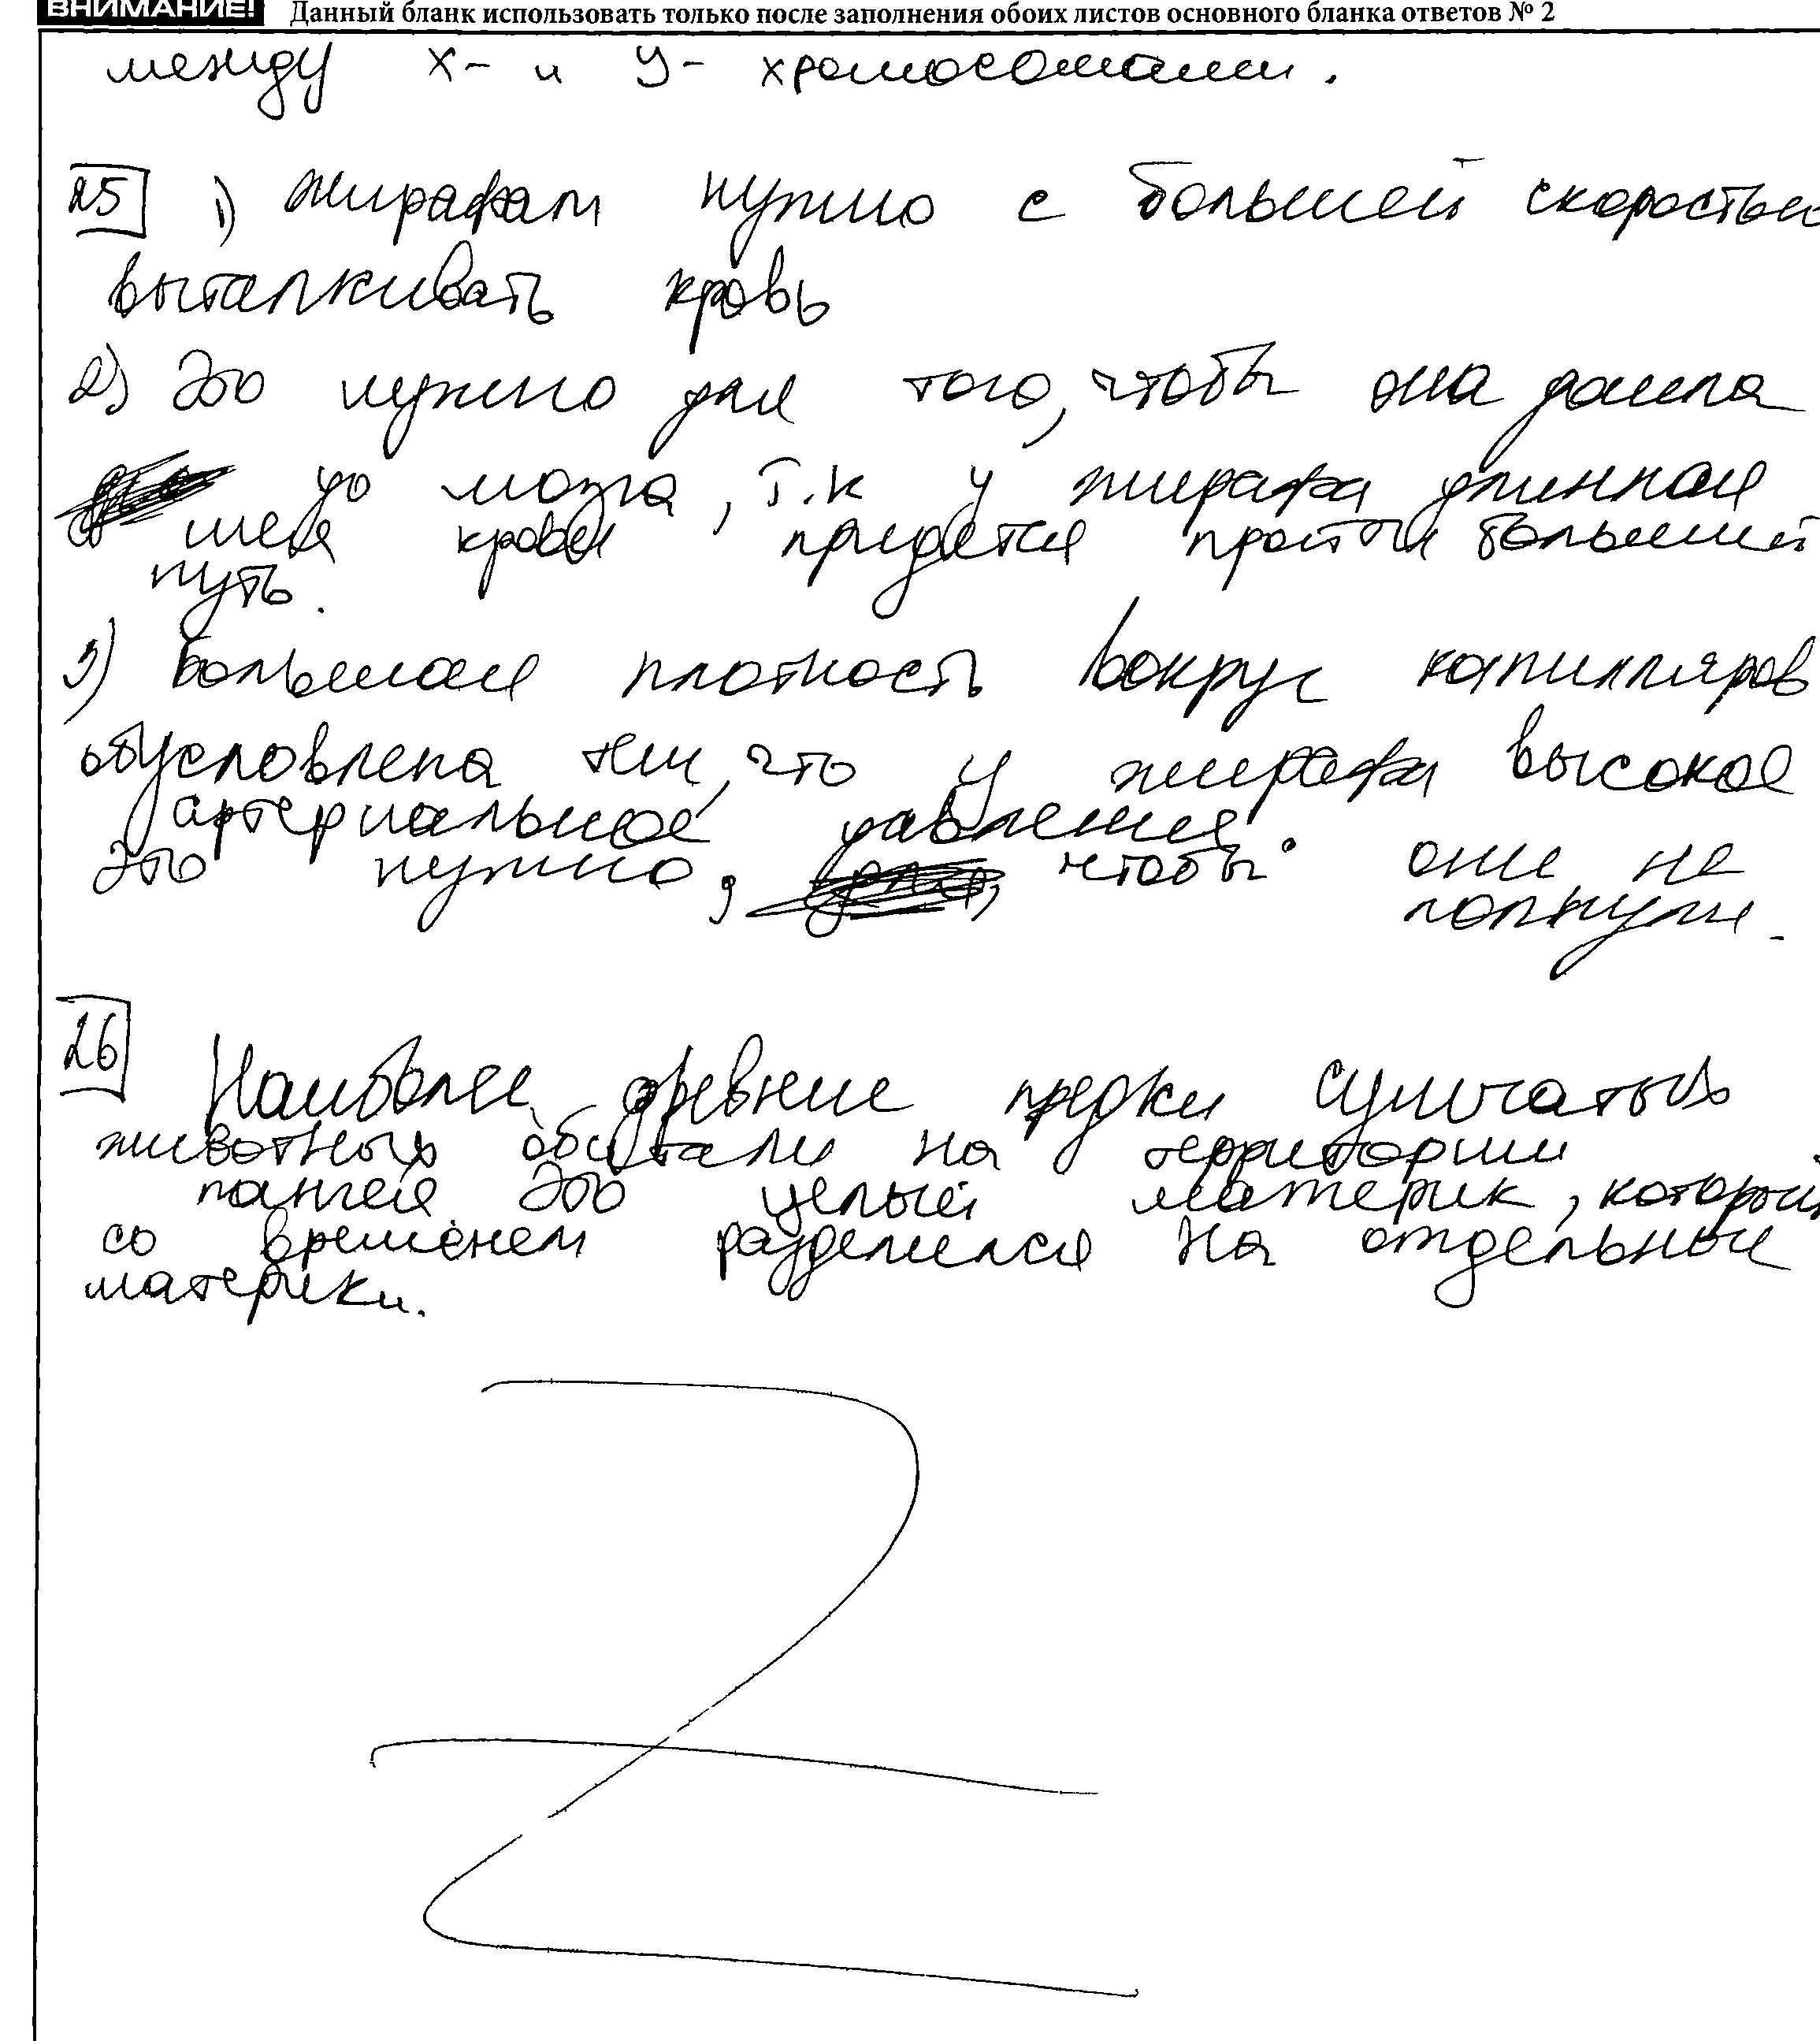 ВНИМАНИЕ! Данный бланк использовать только после заполнения обоих листов основного бланка ответов № 2
между X- и У- хромосомами.
25 1) Жирафам нужно с большей скоростью
выталкивать кровь
2) Это нужно для того, чтобы она дошла
до мозга, т.к у жирафа длинная
шея крови придется пройти больший
путь.
3) Большая плотность вокруг капилляров
обусловлена тем, что у жирафа высокое
артериальное давление.
Это нужно, чтобы они не
лопнули.
26
Наиболее древние предки сумчатых
животных обитали на территории
пангея. Это целый материк, который
со временем разделился на отдельные
материки.